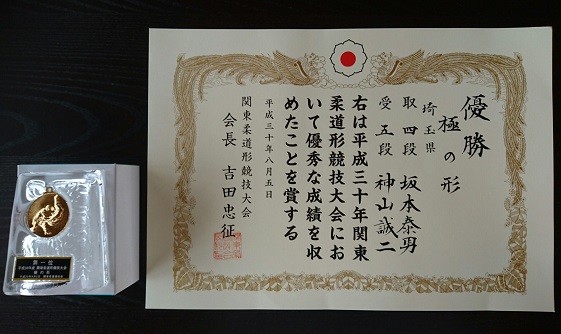 優勝
極の形
埼玉県
取 四段 坂本泰男
受 五段 神山誠二
右は平成三十年関東
柔道形競技大会にお
いて優秀な成績を収
めたことを賞する
平成三十年八月五日
関東柔道形競技大会
会長 吉田忠征
第一位